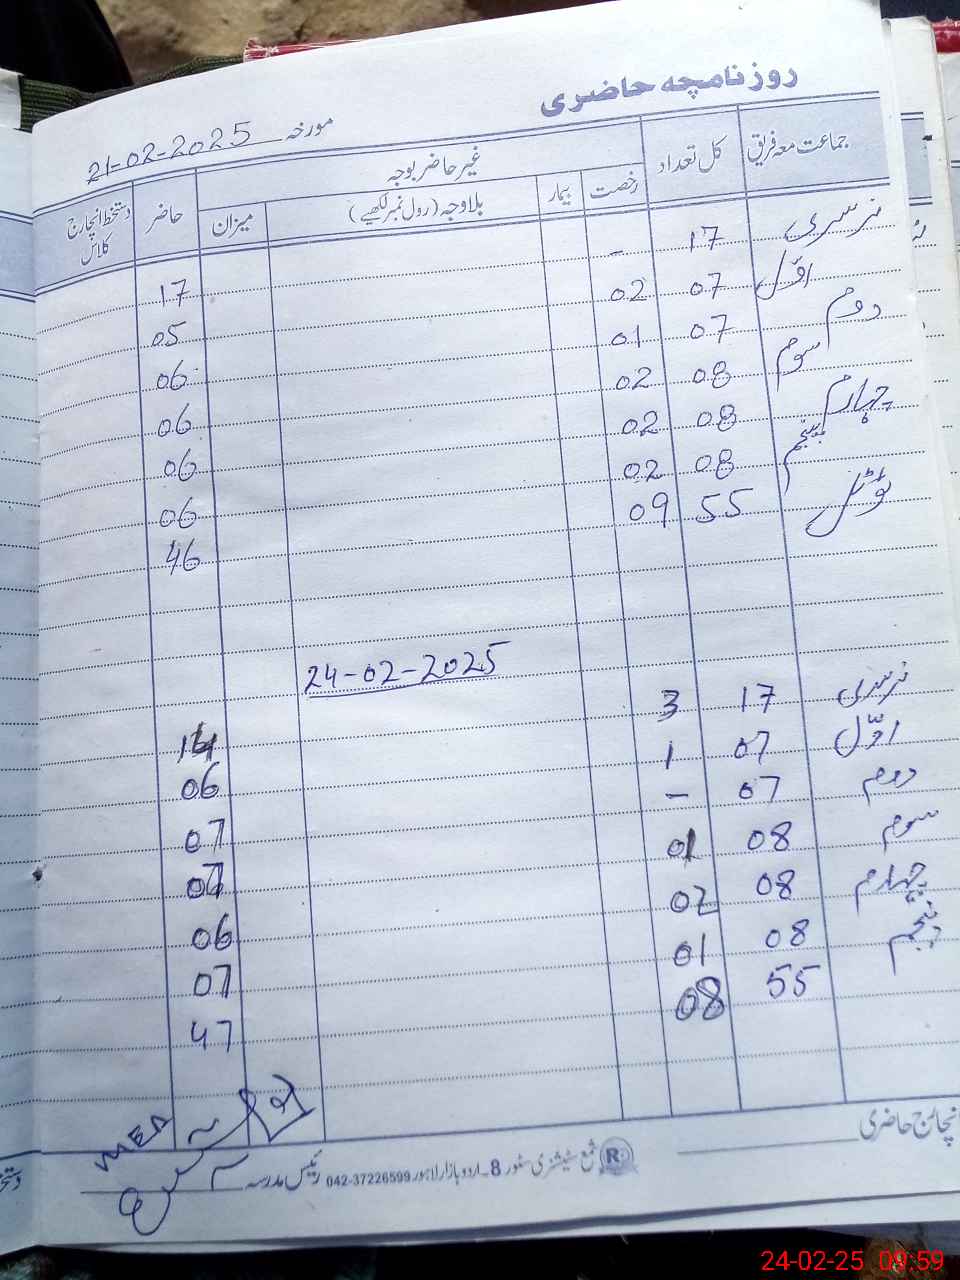 روزنامچہ حاضری
مورخہ 21-02-2025
جماعت معہ فریق کل تعداد غیر حاضر بوجہ حاضر دستخط انچارج کلاس
رخصت بیمار بلاوجہ (رول نمبر لکھیے) میزان
نرسری 17 - 17
اوّل 07 02 05
دوم 07 01 06
سوم 08 02 06
چہارم 08 02 06
پنجم 08 02 06
ٹوٹل 55 09 46
24-02-2025
نرسری 17 3 14
اوّل 07 1 06
دوم 07 - 07
سوم 08 01 07
چہارم 08 02 06
پنجم 08 01 07
55 08 47
انچارج حاضری
MEA
شمع سٹیشنری سٹور 8۔اردو بازار لاہور 042-37226599 رئیس مدرسہ
24-02-25 09:59